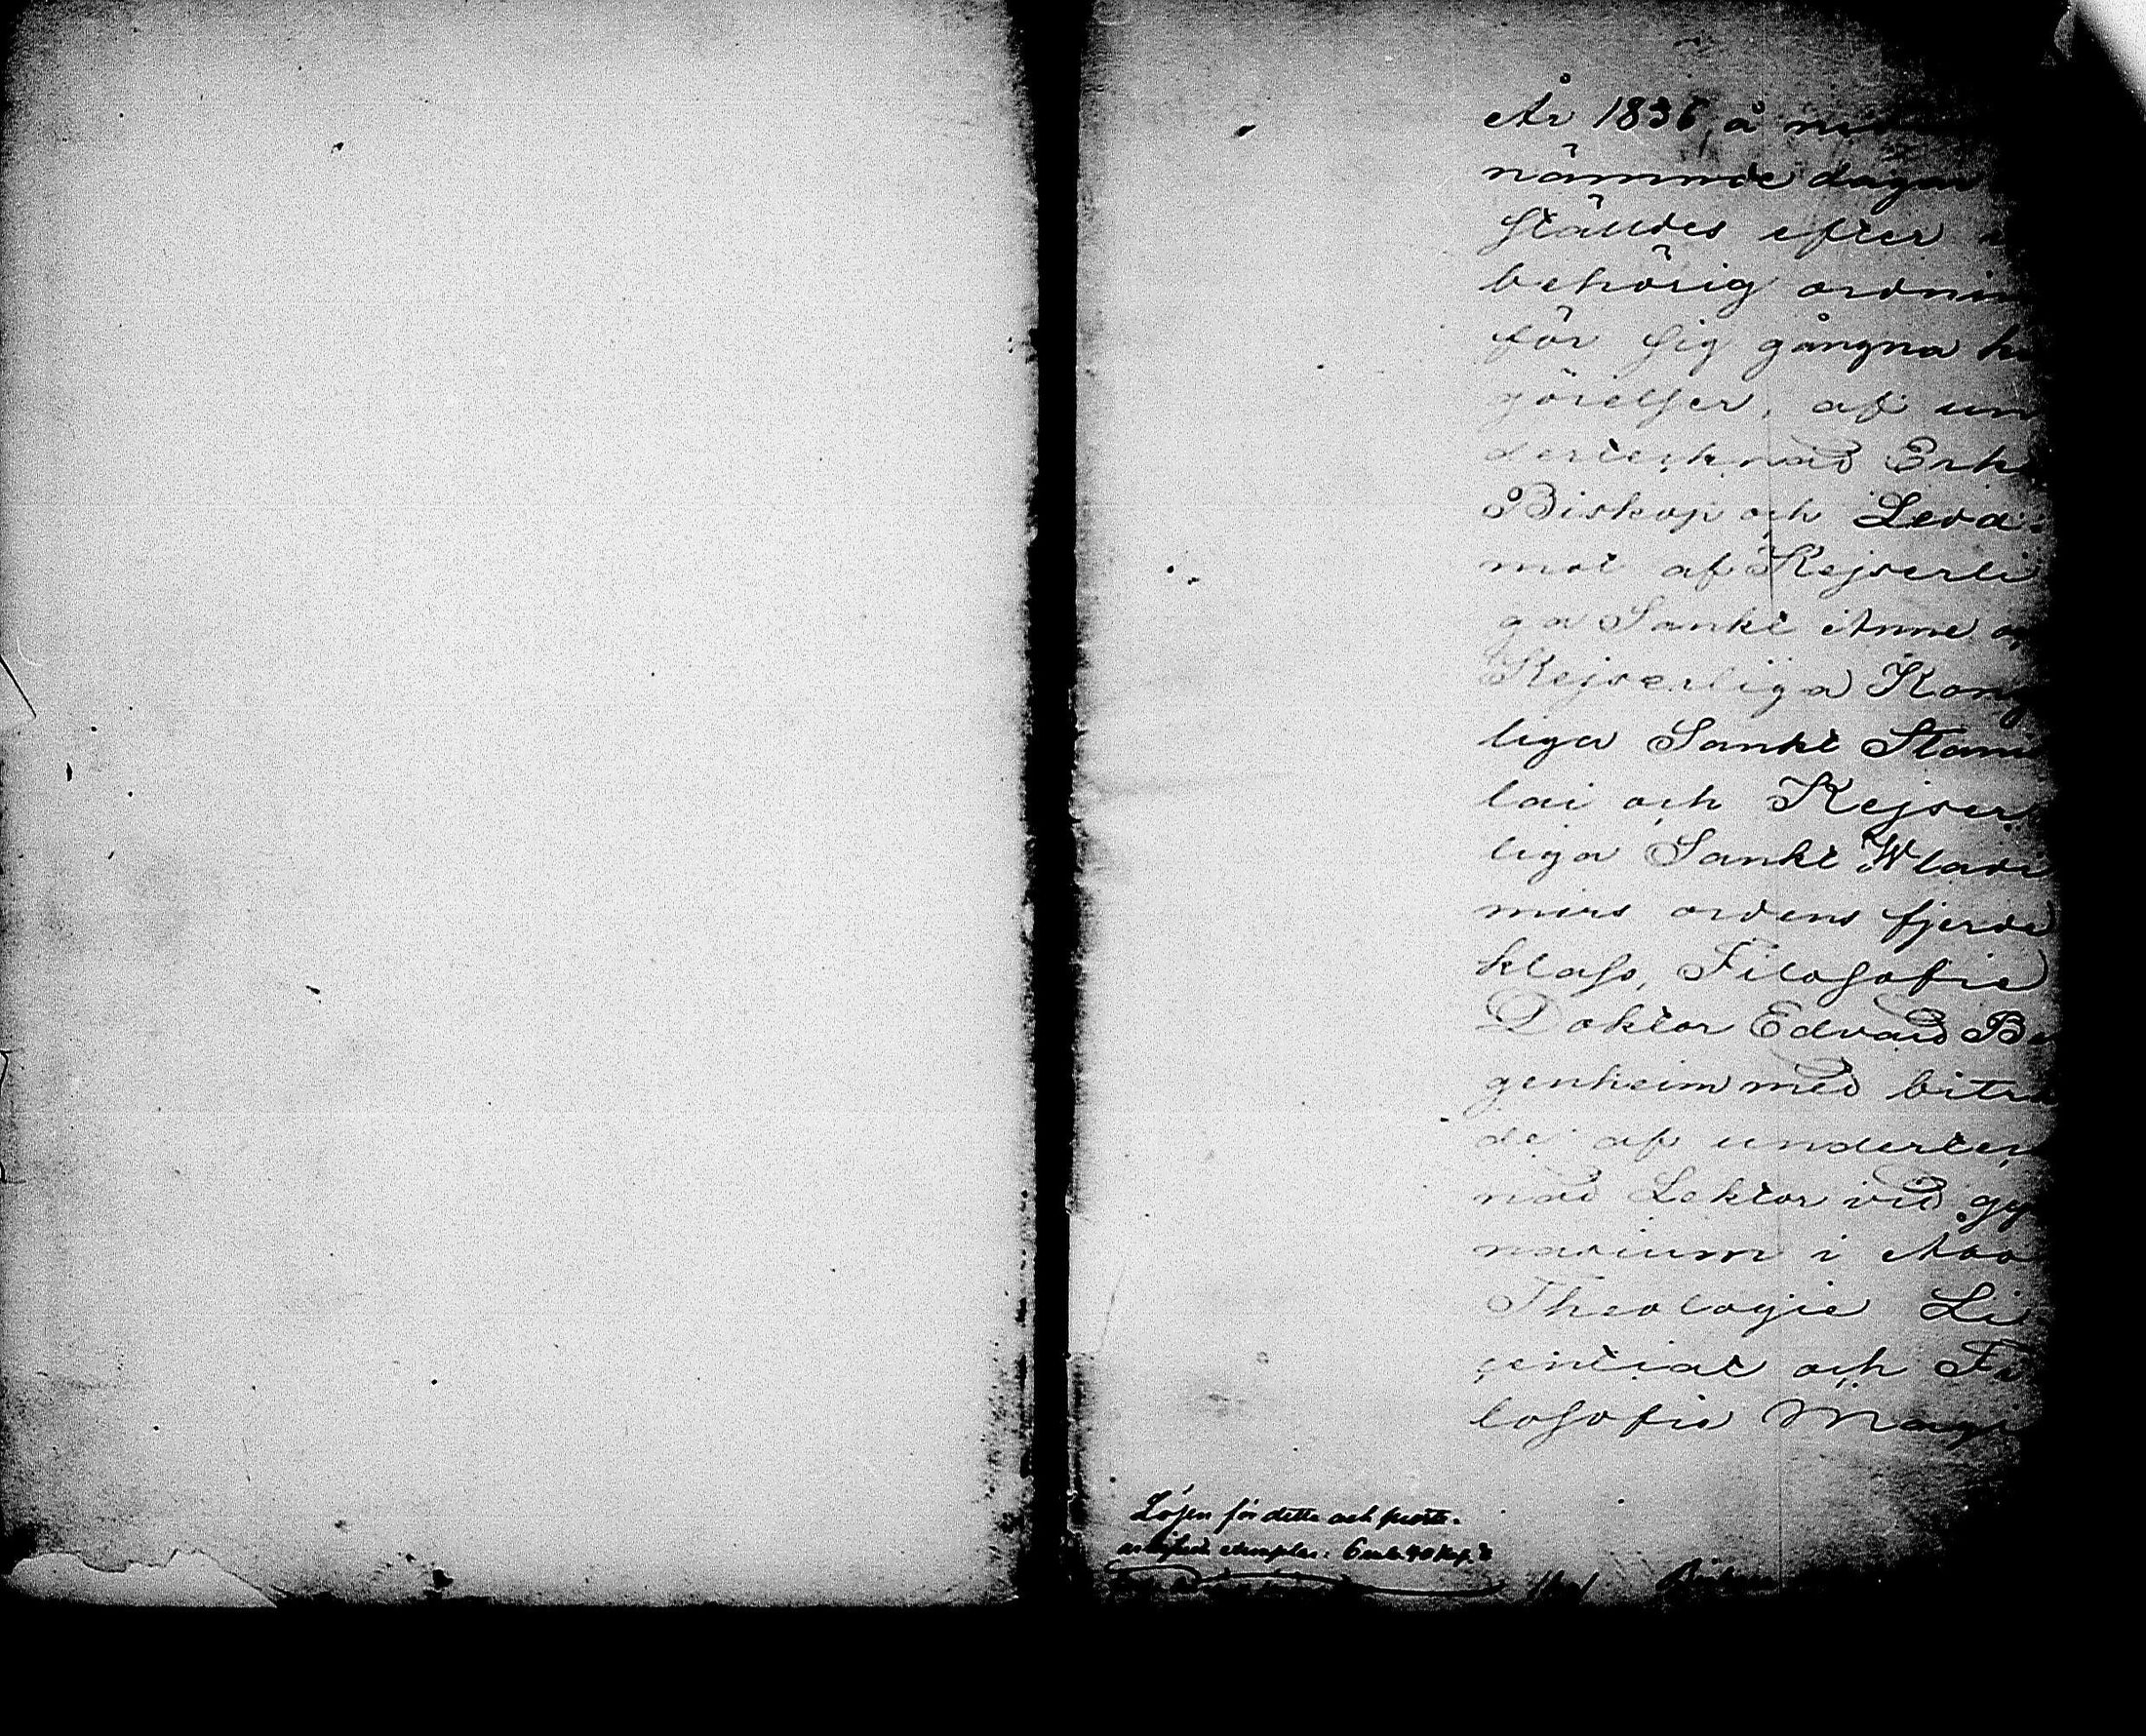 År 1856, å
nämnde dagar
ställdes efter
behörig ordnin
för sig gångna ku
görelser, af un
dertecknad Erke
Biskop och Leda-
mot af Kejserli
ga Sankt Anne o
Kejserliga Kong
liga Sankt Stanis
lai och Kejser
liga Sankt Wladi
mirs ordens fjerde
klass, Filosofie
Doktor Edvard Be
genheim med biträ
de af underteck
nad Lektor vid gy
nasium i Åbo
Theologie Li
centiat och Fi
losofie Magi
Lösen för dette och
exemplar: 6 rub. 40 kop.